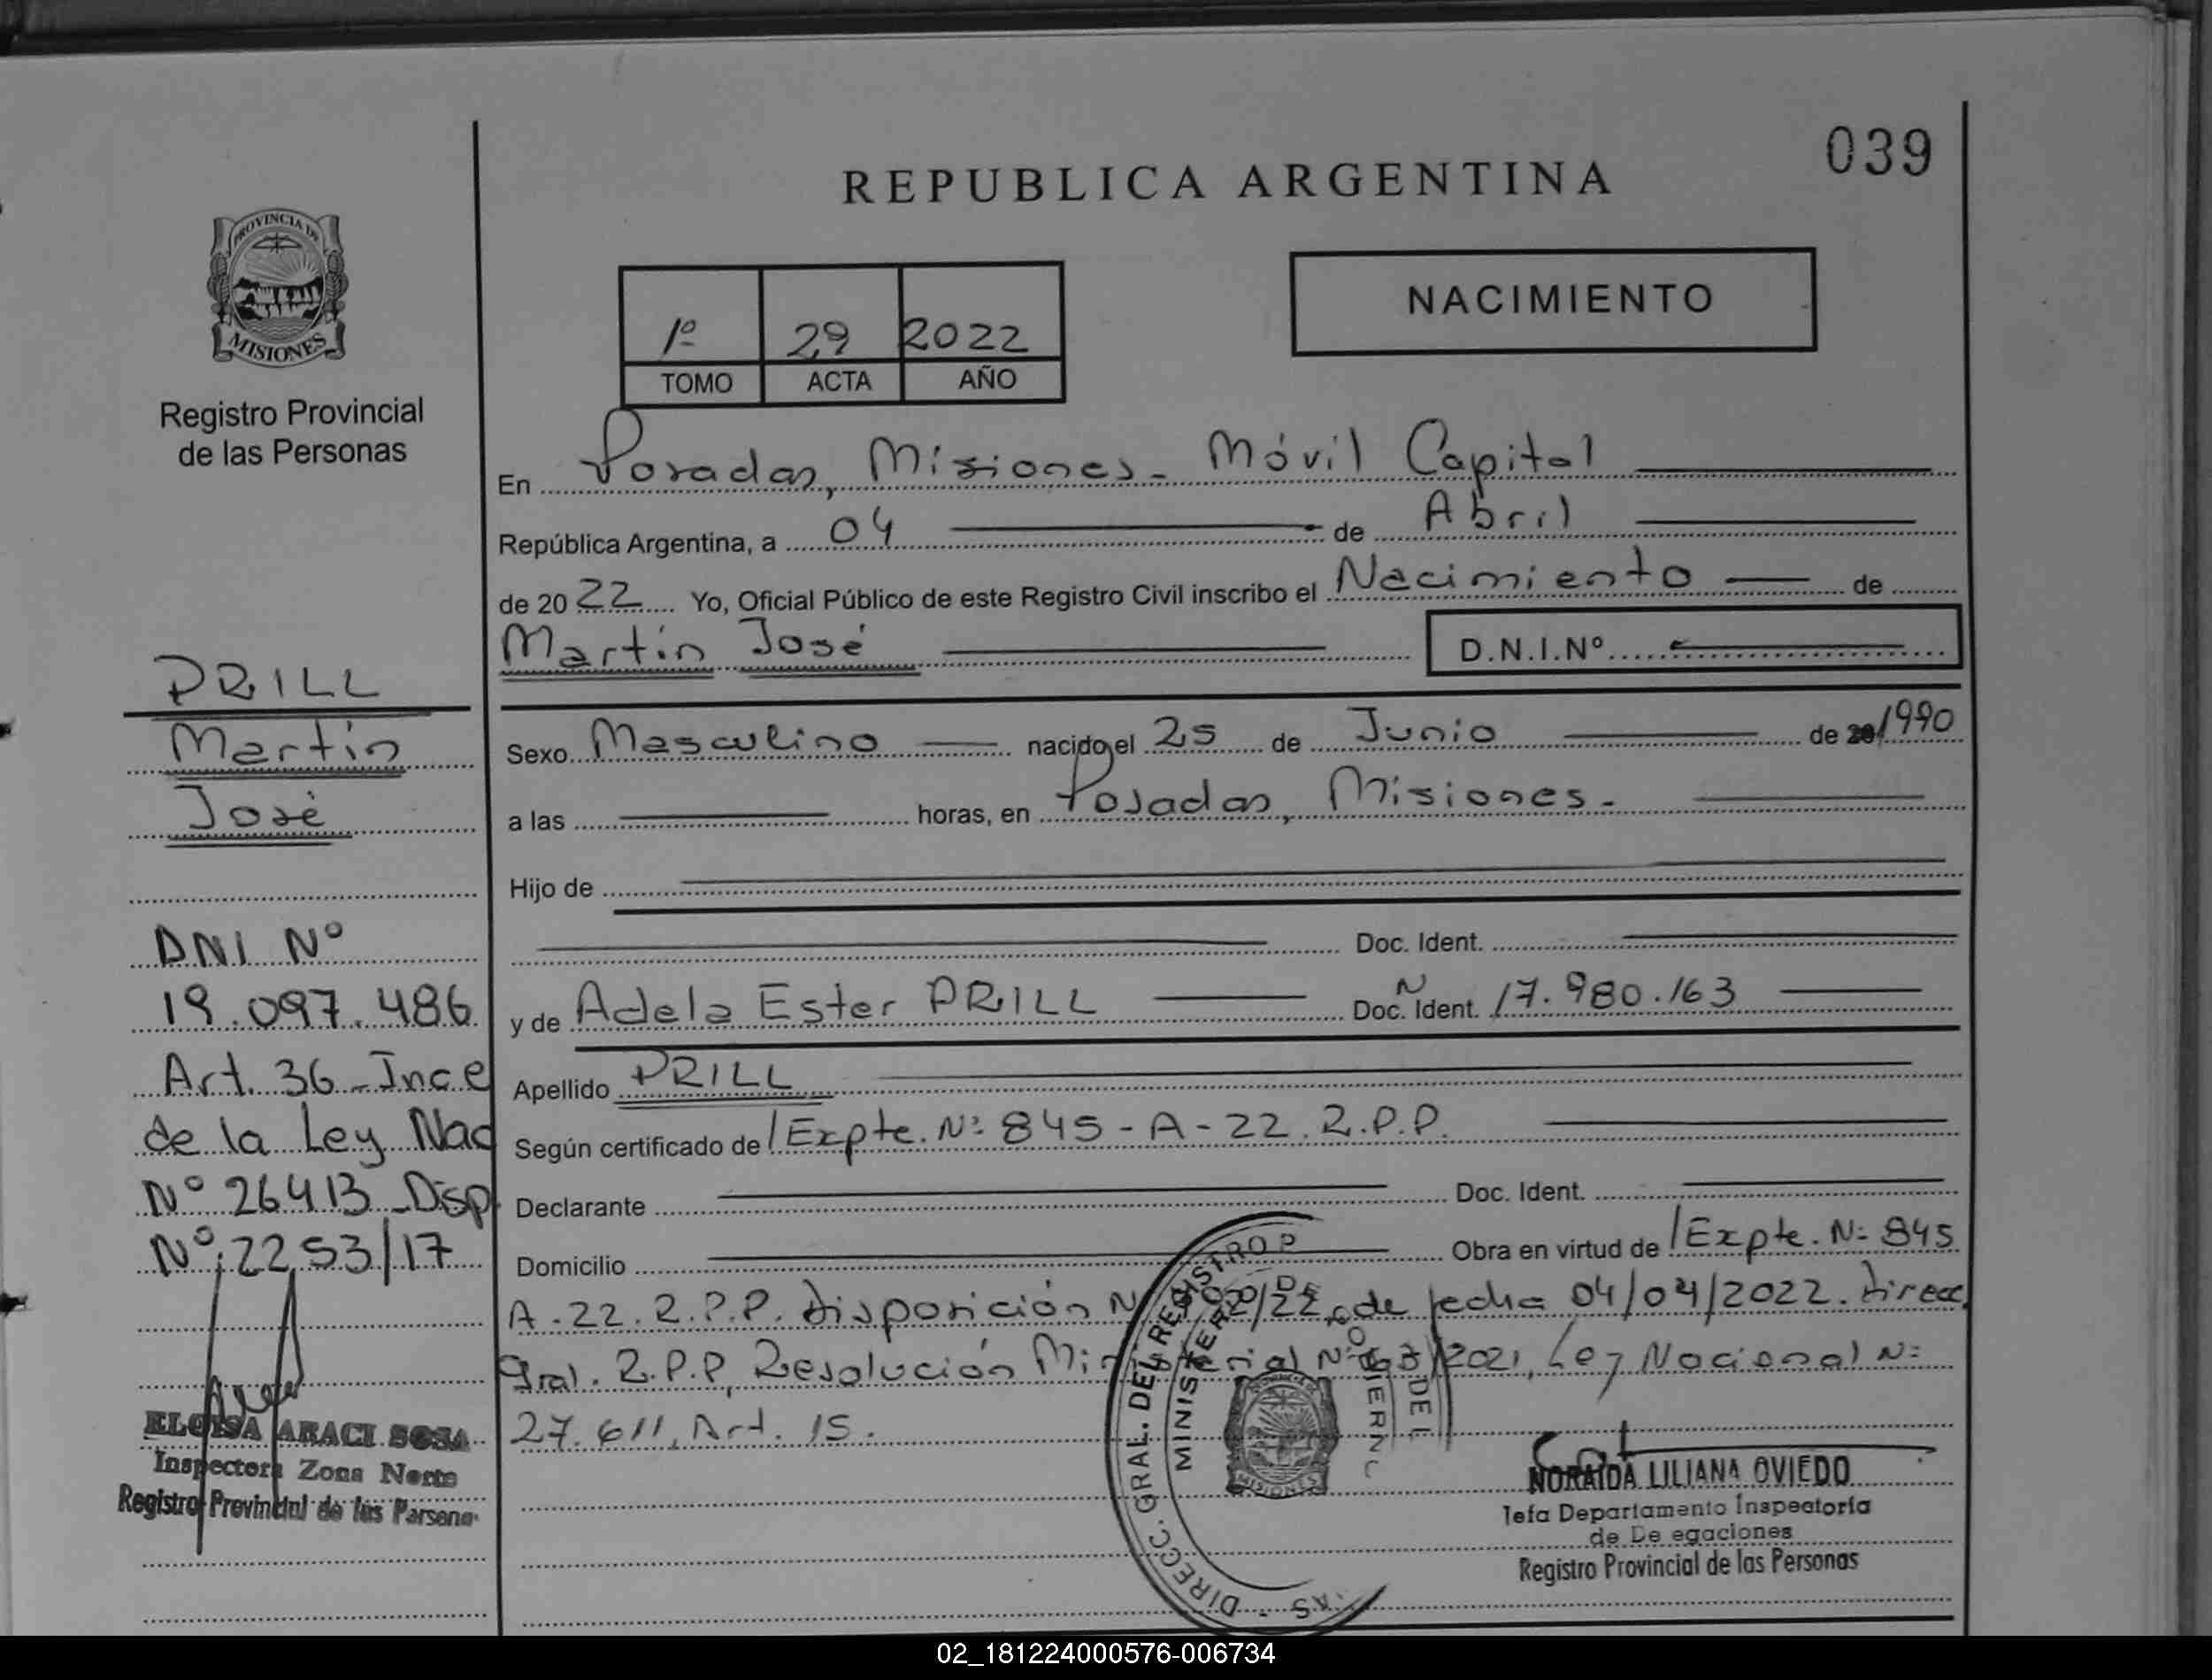 039
REPUBLICA ARGENTINA
PROVINCIA DE
MISIONES
Registro Provincial
de las Personas
1º 29 2022
TOMO ACTA AÑO
NACIMIENTO
En Posadas, Misiones - Móvil Capital
República Argentina, a 04 de Abril
de 2022 Yo, Oficial Público de este Registro Civil inscribo el Nacimiento de
Martín José D.N.I.Nº
Sexo Masculino nacido el 25 de Junio de 20/1990
a las horas, en Posadas, Misiones.
Hijo de
Doc. Ident.
y de Adela Ester PRILL Doc. Ident. N 17.980.163
Apellido PRILL
Según certificado de/Expte. Nº 845-A-22. R.P.P.
Declarante Doc. Ident.
Domicilio Obra en virtud de/Expte. Nº 845
A-22. R.P.P. Disposición de fecha 04/04/2022. Direcc.
Gral. R.P.P, Resolución Ministerial /2021, Ley Nacional Nº
27.611, Art. 15.
PRILL
Martín
José
DNI Nº
19.097.486
Art. 36 - Inc e
de la Ley Nac
Nº 26413 - Disp
Nº: 2253/17
ELOISA ARACI SOSA
Inspectora Zona Norte
Registro Provincial de las Persona
DIRECC. GRAL. DEL REGISTRO P
MINISTER
MISIONES
NORAIDA LILIANA OVIEDO
Jefa Departamento Inspectoría
de De egaciones
Registro Provincial de las Personas
02_181224000576-006734